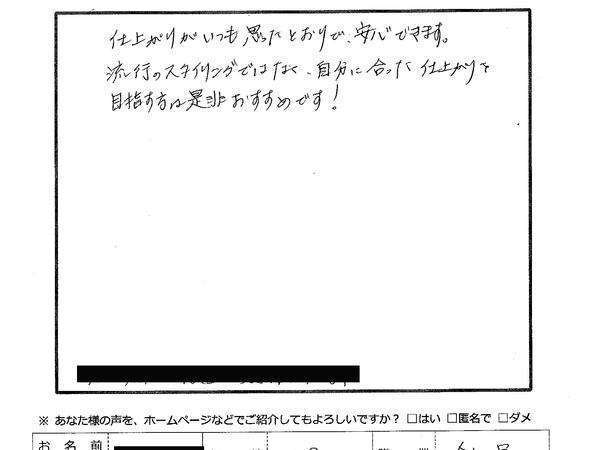 仕上がりがいつも思ったとおりで、安心できます。
流行のスタイリングではなく、自分に合った仕上がりを
目指す方は是非おすすめです！
※ あなた様の声を、ホームページなどでご紹介してもよろしいですか？ □はい □匿名で □ダメ
お 名 前